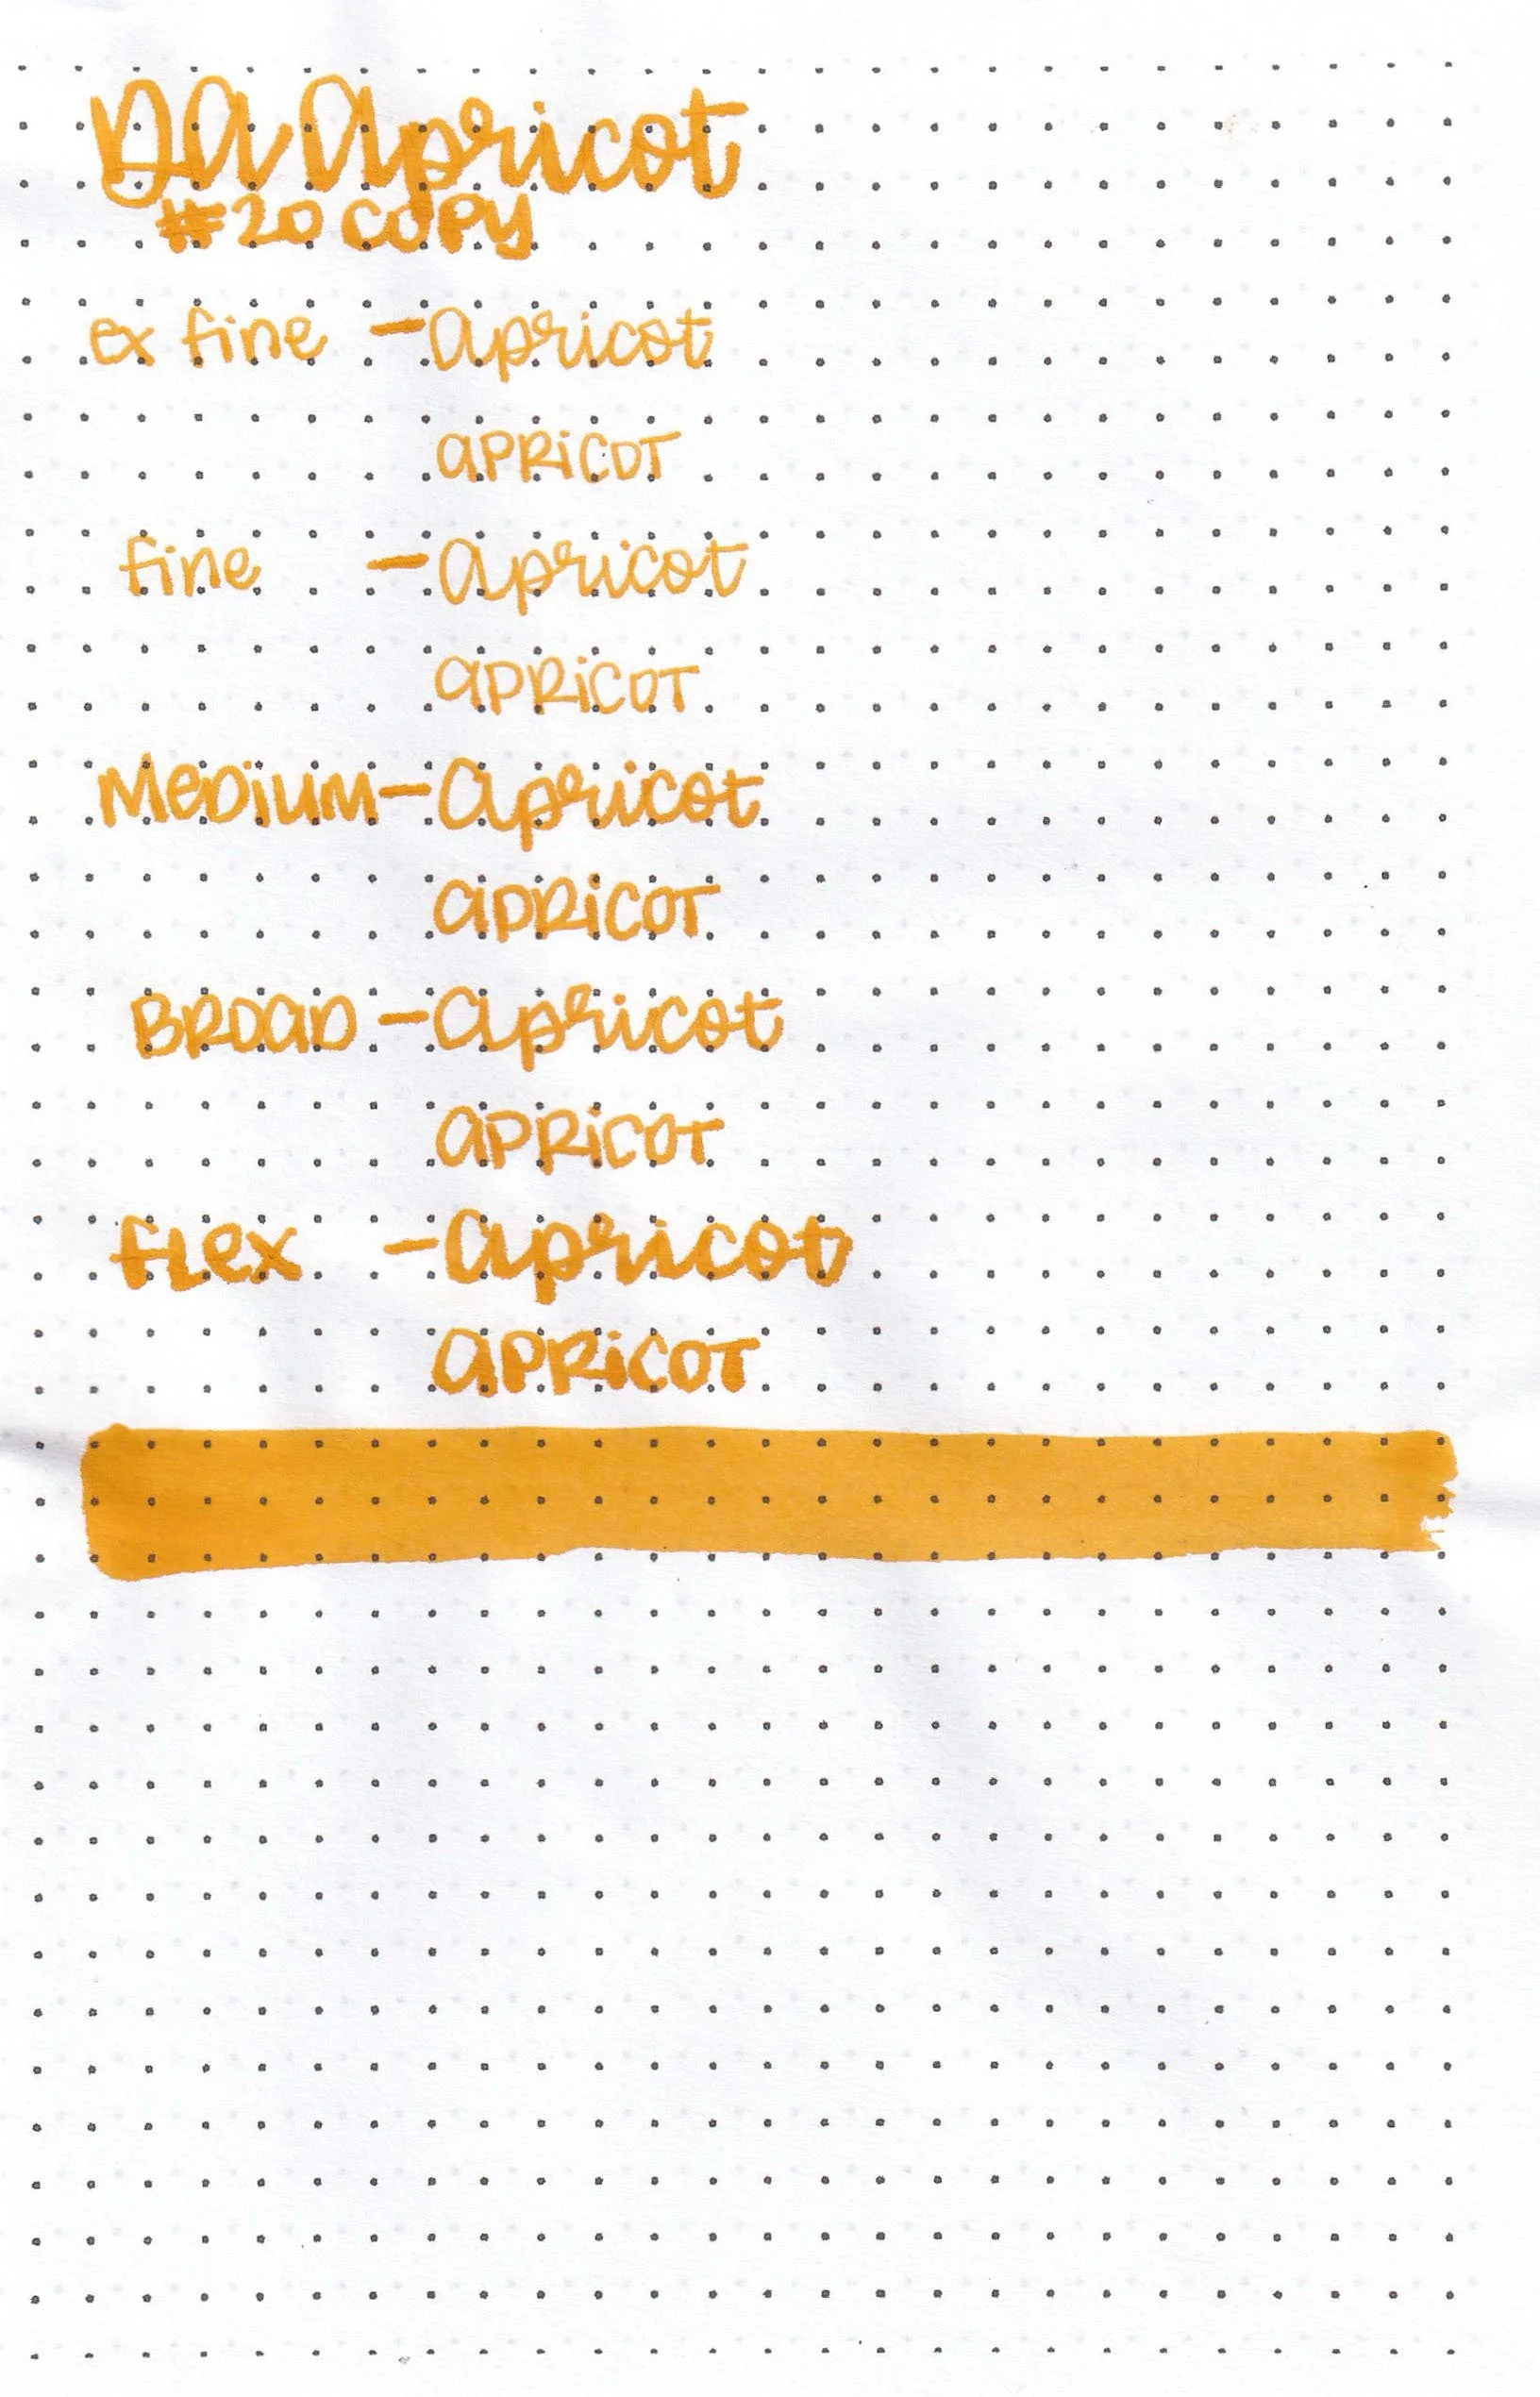 DA Apricot
#20 COPY
ex fine - Apricot
APRiCOT
fine - Apricot
APRiCOT
MeDiUM - Apricot
APRiCOT
BROAD - Apricot
APRiCOT
fLex - Apricot
APRiCOT